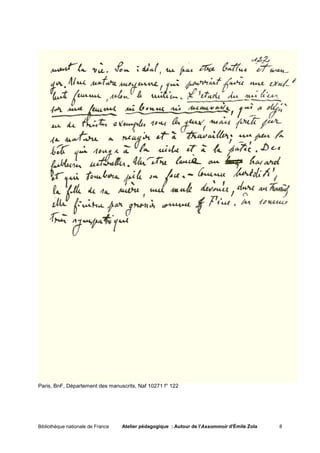 122
mant la vie. Son idéal, ne pas être battue et man
ger. Une nature moyenne, qui pourrait faire une excel
lente femme, selon le milieu. L'étude du milieu
sur une femme ni bonne ni mauvaise, qui a déjà
eu de tristes exemples sous les yeux, mais prête par
sa nature a réagir et à travailler: un peu la
bête qui songe à la niche et à la pâtée. Des
faiblesses naturelles. Un être lancé au hasard
et qui tombera pile ou face. - Comme hérédité,
la fille de sa mère, une mule dévouée, dure au travail
elle finira par grossir comme Fine. En somme
très sympathique
Paris, BnF, Département des manuscrits, Naf 10271 f° 122
Bibliothèque nationale de France Atelier pédagogique : Autour de l'Assommoir d'Émile Zola 8